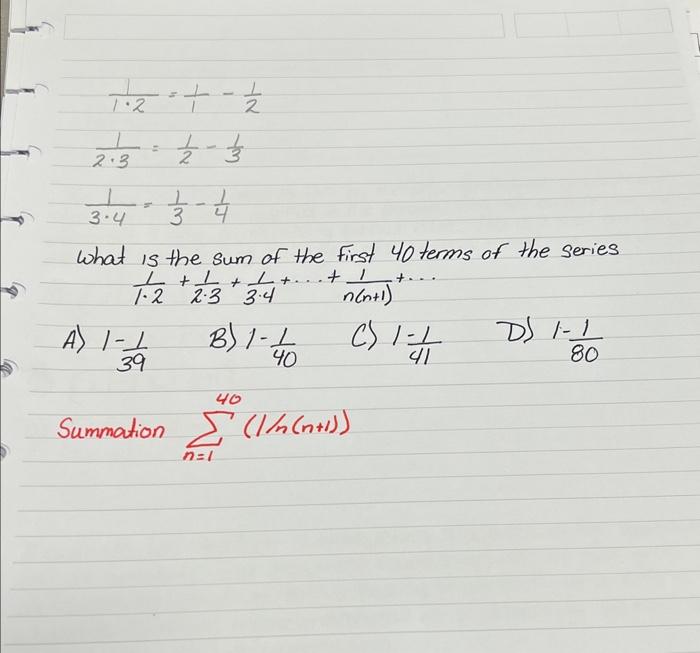 1/1·2 = 1/1 - 1/2
1/2·3 = 1/2 - 1/3
1/3·4 = 1/3 - 1/4
What is the sum of the first 40 terms of the series
1/1·2 + 1/2·3 + 1/3·4 + ... + 1/n(n+1) + ...
A) 1-1/39 B) 1-1/40 C) 1-1/41 D) 1-1/80
Summation 40 ∑ n=1 (1/n(n+1))